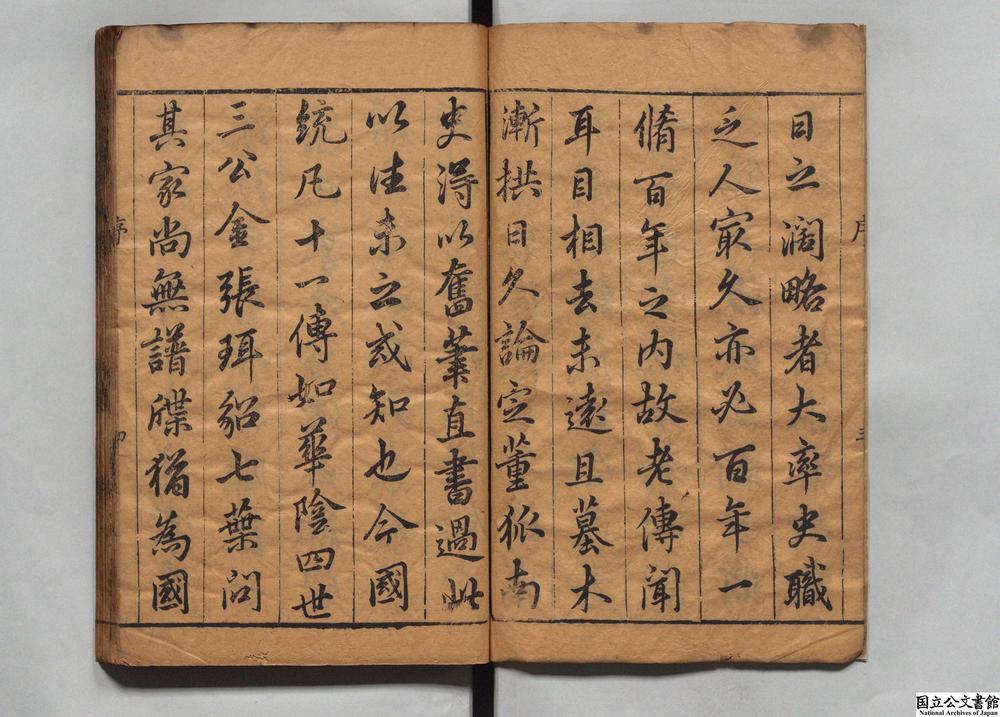 日之濶略者大率史職
乏人㝡久亦必百年一
脩百年之內故老傳聞
耳目相去未遠且墓木
漸拱日久論定董狐南
史得以奮筆直書過此
以徃未之或知也今國
統凡十一傳如華陰四世
三公金張珥貂七葉問
其家尚無譜牒猶為國
序
国立公文書館
National Archives of Japan